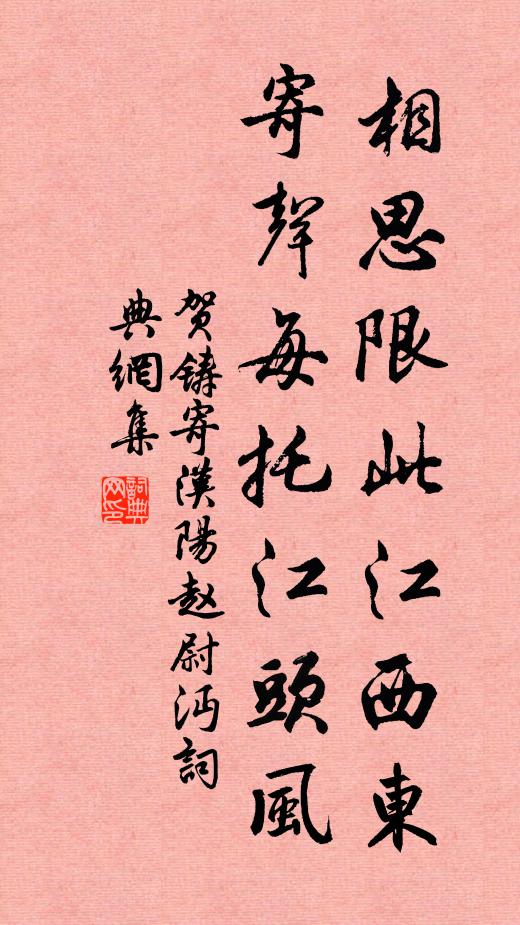 相思限此江西東
寄聲每托江頭風
贺鑄寄漢陽赵尉沔詞
典網集
詞典
网印